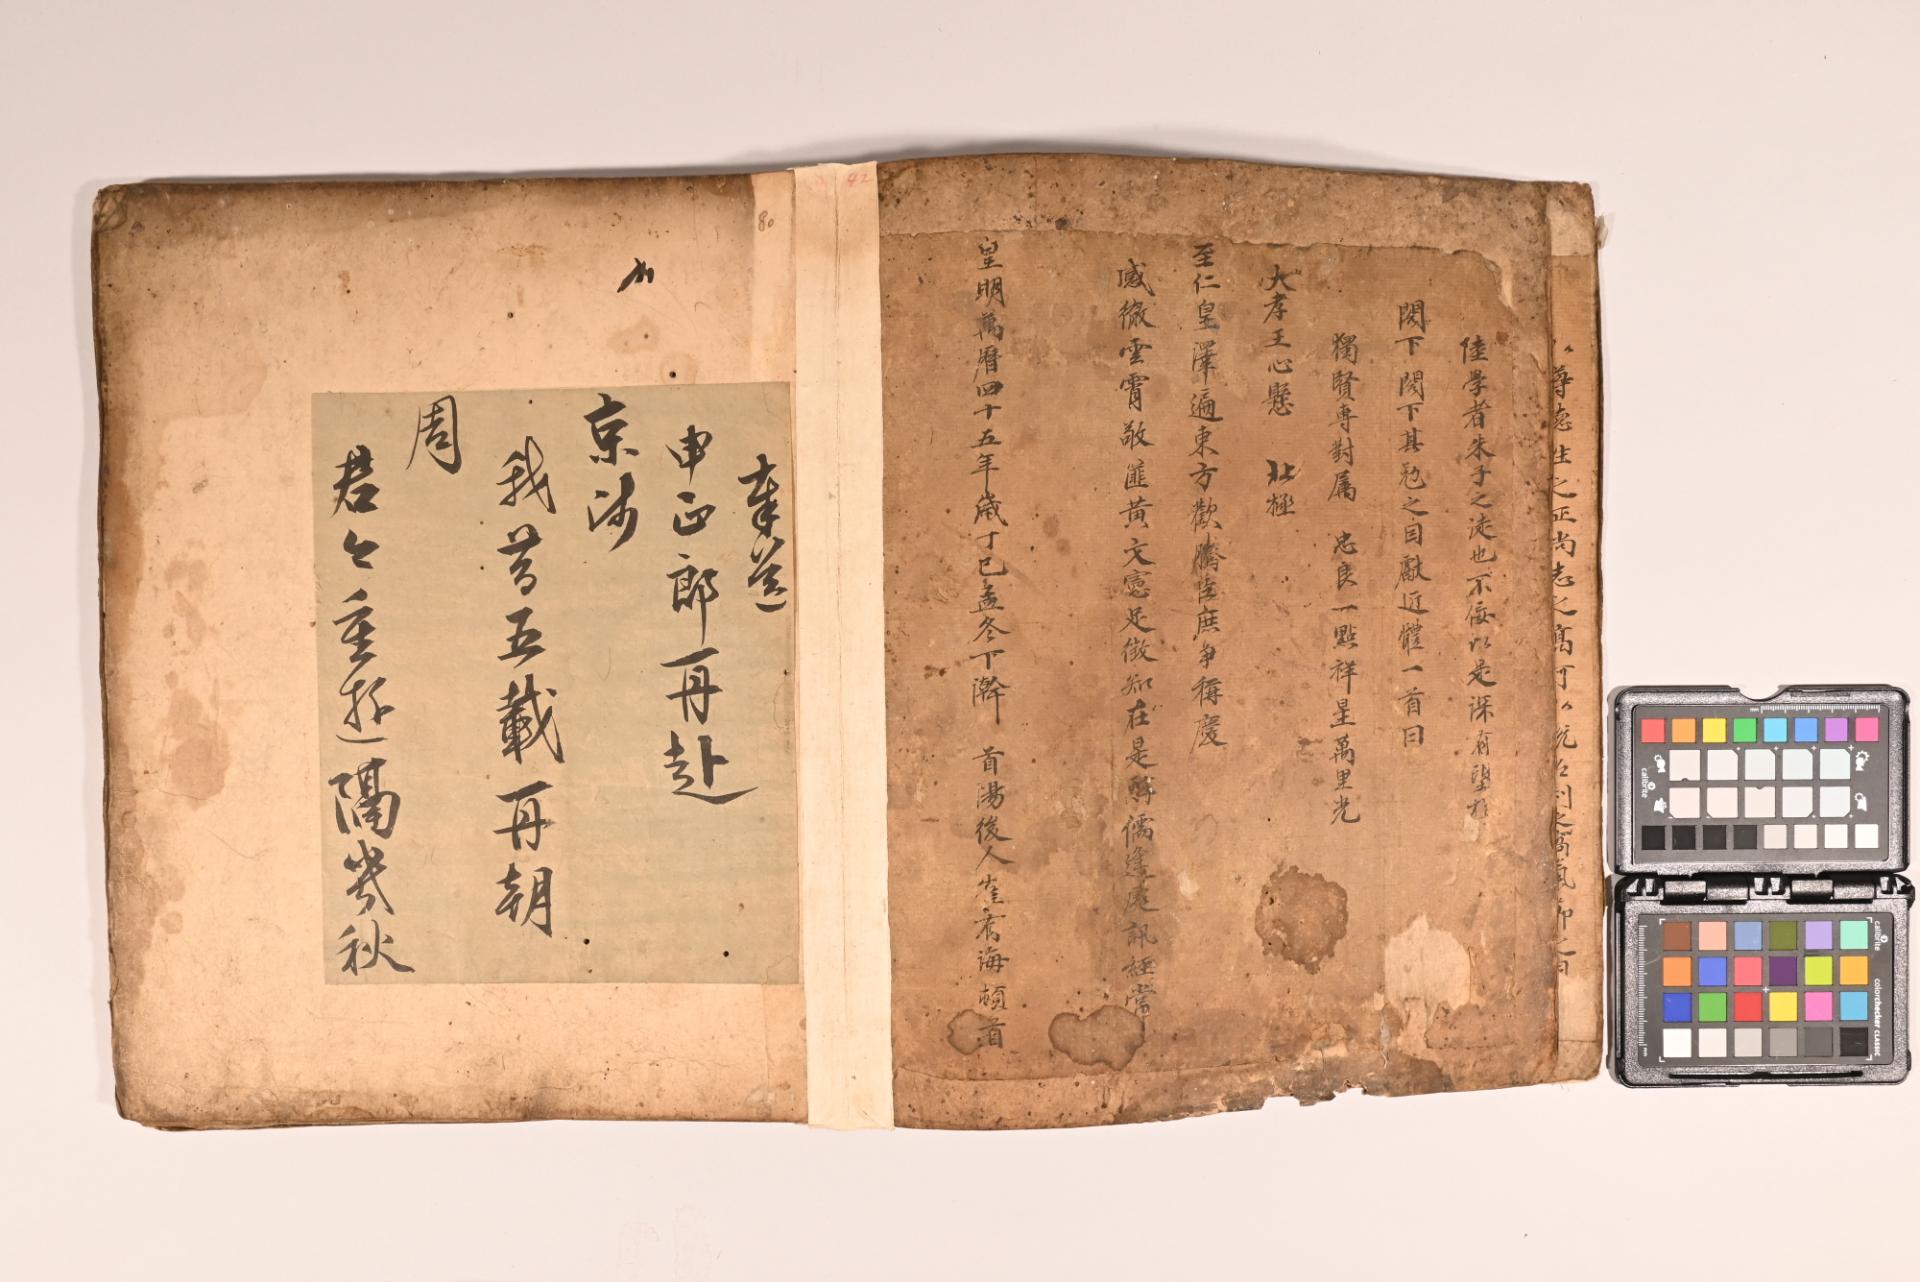 尊德性之正尚志之高
陸學者朱子之徒也不佞以是深有望於
閤下閤下其勉之自獻近體一首曰
獨賢專對屬 忠良一點祥星萬里光
大孝王心懸 北極
至仁皇澤遍東方歡騰臣庶爭稱慶
感徹雲霄敬匪黃文憲足徵知在是鮮儒逢處訊經常
皇明萬曆四十五年歲丁巳孟冬下澣 首陽後人崔有海頓首
42
80
奉送
申正郎再赴
京師
我昔五載再朝
周
君今重遊隔幾秋
calibrite
colorchecker CLASSIC